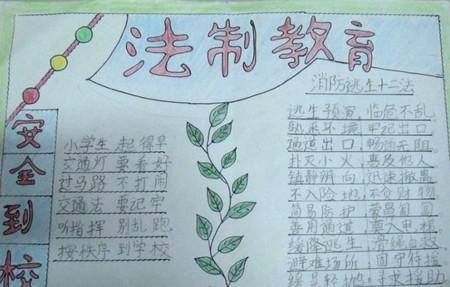 法制教育
安全到校
小学生 起得早
交通灯 要看好
过马路 不打闹
交通法 要记牢
听指挥 别乱跑
按秩序 到学校
消防逃生十二法
逃生预演,临危不乱
熟悉环境,牢记出口
通道出口,畅通无阻
扑灭小火,惠及他人
镇静辨向,迅速撤离
不入险地,不贪财物
简易防护,匍匐
善用通道,莫入电梯
缓降逃生,滑绳自救
避难场所,固守待援
缓晃轻抛,寻求援助